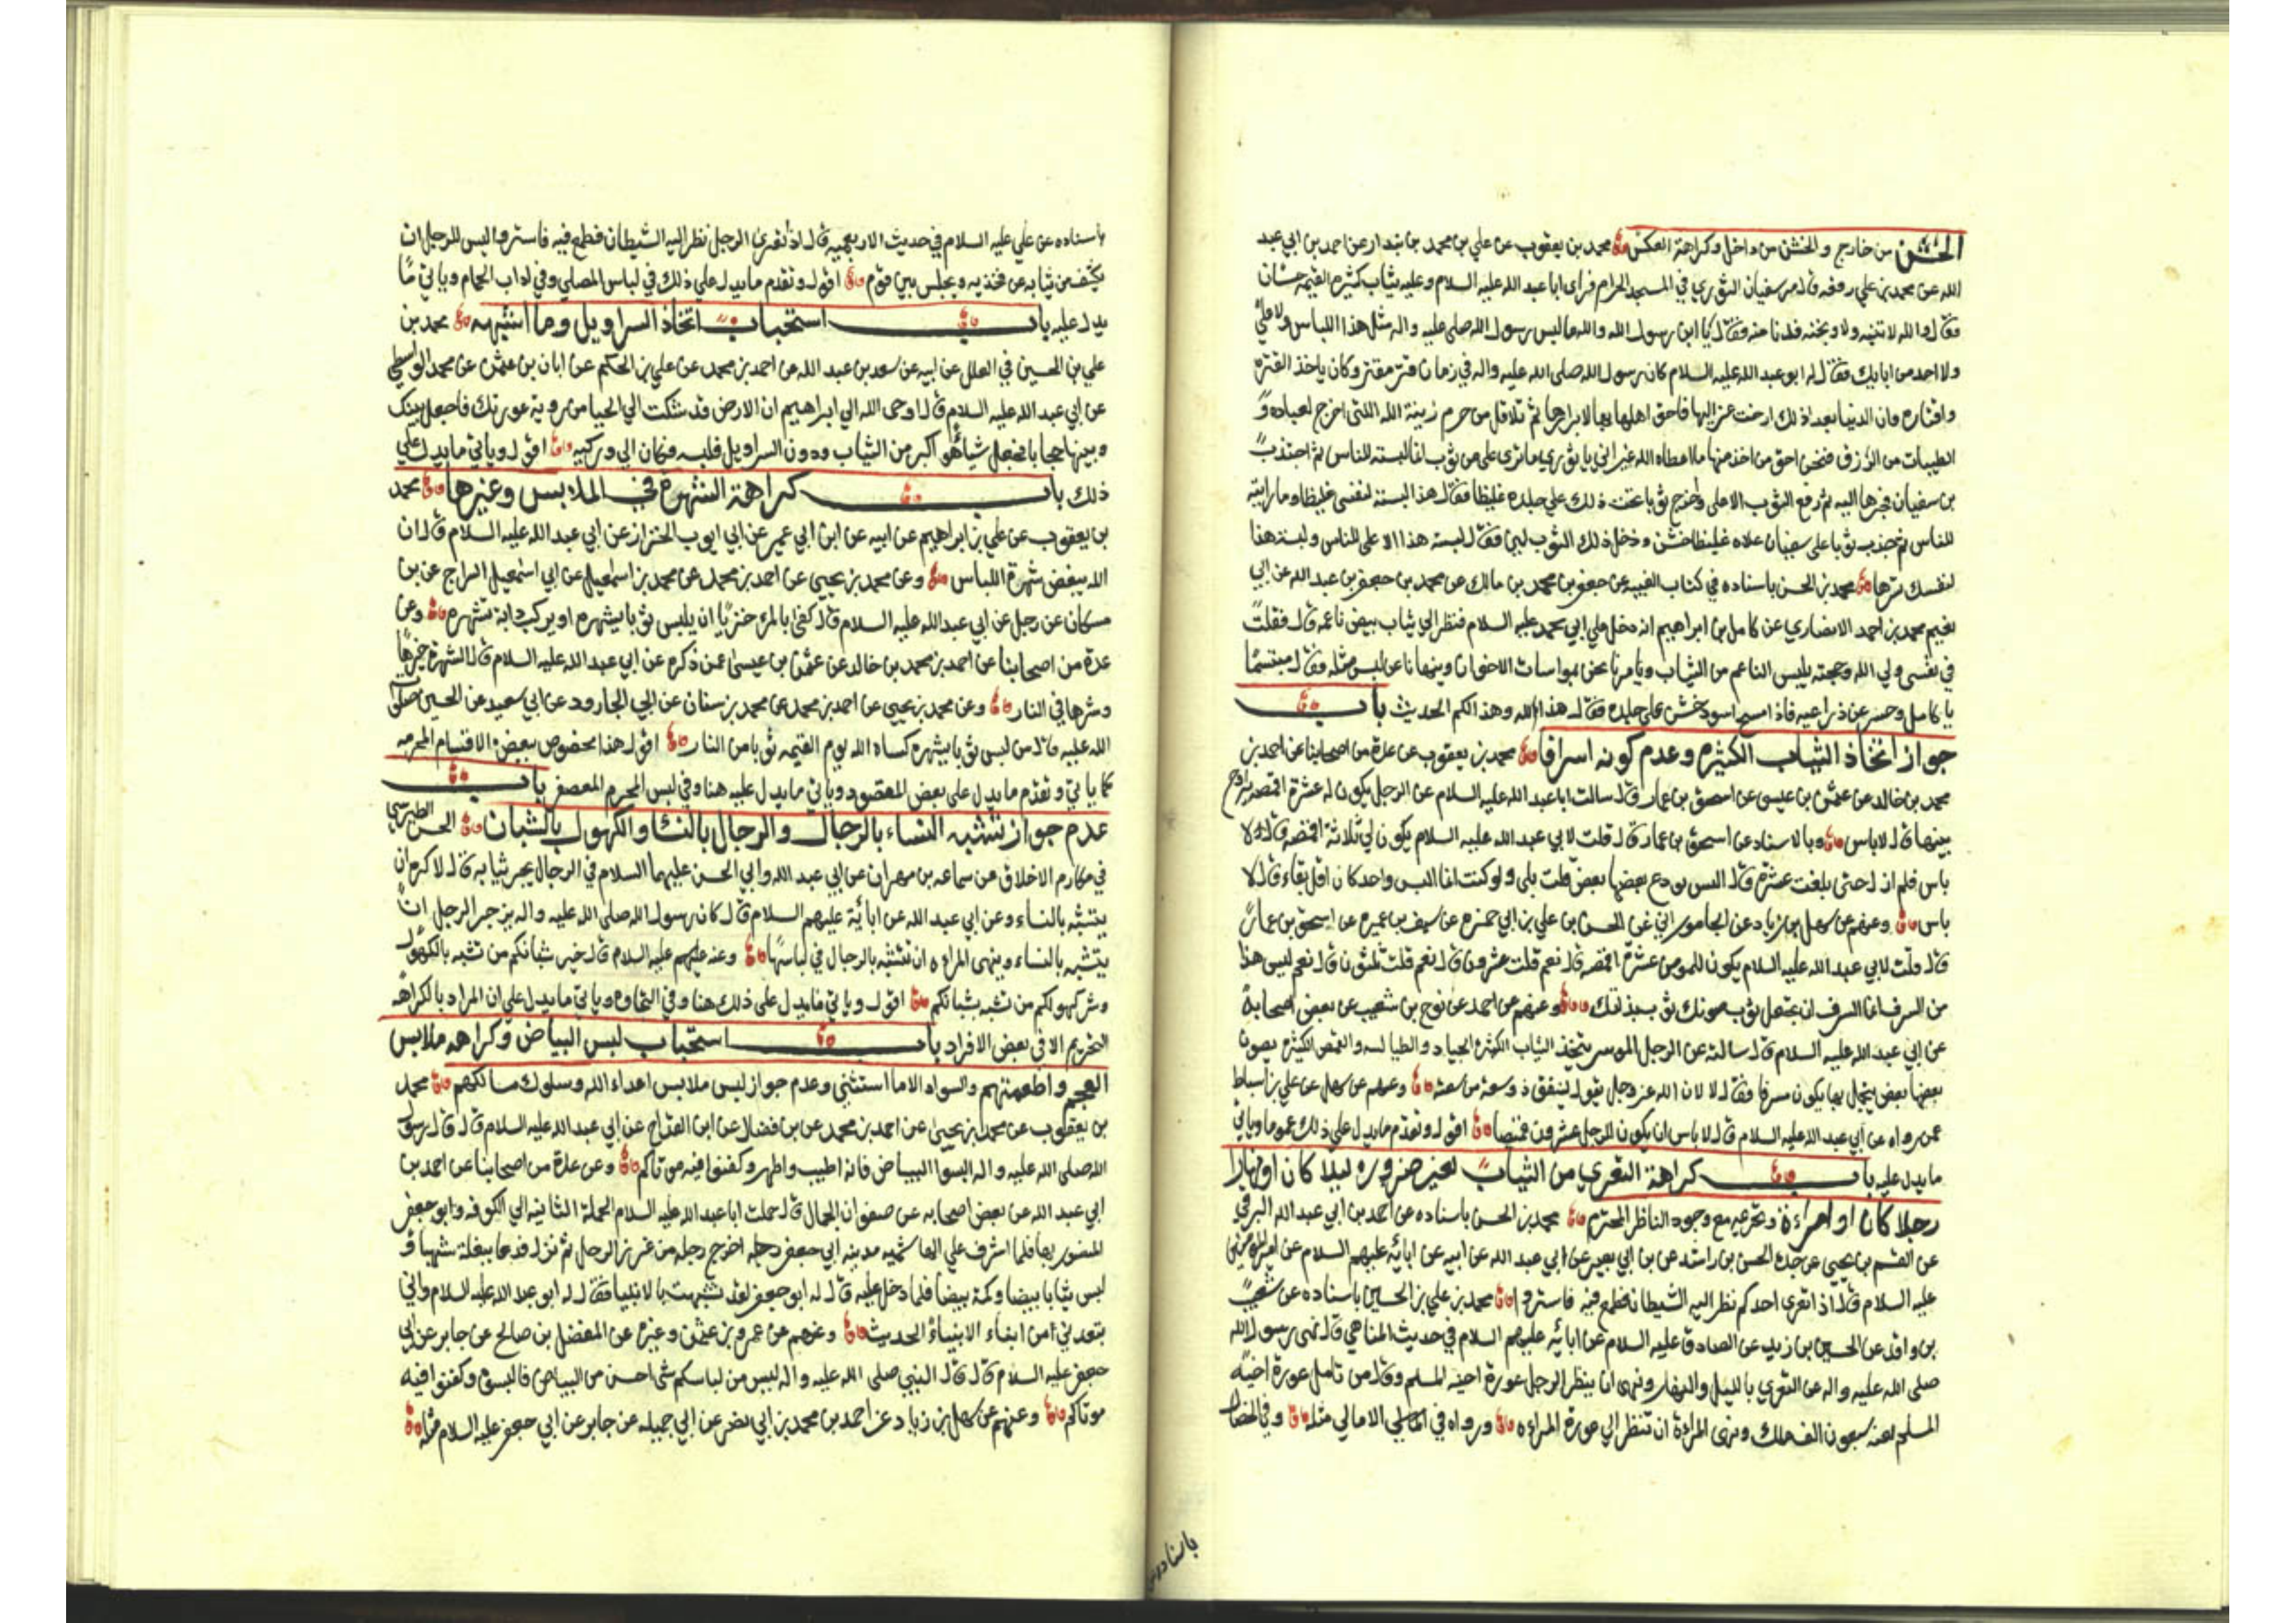 الخشن من خارج والخشن من داخل وكراهة العكس محمد بن يعقوب عن علي بن محمد بن بندار عن احمد بن ابي عبد
الله عن محمد بن علي رفعه قال مر سفيان الثوري في المسجد الحرام فراى ابا عبد الله عليه السلام وعليه ثياب كثيره القيمه حسان
فقال والله لاتينه ولاوبخنه فدنا منه فقال يا ابن رسول الله والله ما لبس رسول الله صلى عليه واله مثل هذا اللباس ولا علي
ولا احد من ابايك فقال له ابو عبد الله عليه السلام كان رسول الله صلى الله عليه واله في زمان قتر مقتر وكان ياخذ لقتره
واقتاره وان الدنيا بعد ذلك ارخت عزاليها فاحق اهلها بها لابرارها ثم تلا قل من حرم زينة الله اللتي اخرج لعباده و
الطيبات من الرزق فنحن احق من اخذ منها ما اعطاه الله غير اني يا ثوري ما ترى علي من ثوب انما لبسته للناس ثم اجتذب
بن سفيان فجرها اليه ثم رفع الثوب الاعلى واخرج ثوبا تحت ذلك على جلده غليظا فقال هذا البسته لنفسى غليظا وما رايته
للناس ثم جذب ثوبا على سفيان علاه غليظا خشن وداخل ذلك الثوب لين فقال لبست هذا الاعلى للناس ولبست هذا
لنفسك تسرها محمد بن الحسن باسناده في كتاب الغيبه عن جعفر بن محمد بن مالك عن محمد بن جعفر بن عبد الله عن ابي
نعيم محمد بن احمد الانصاري عن كامل بن ابراهيم انه دخل على ابي محمد عليه السلام فنظر الى ثياب بيض ناعمه قال فقلت
في نفسى ولي الله وحجته يلبس الناعم من الثياب ويامرنا نحن بمواسات الاخوان وينهانا عن لبس مثله فقال مبتسما
يا كامل وحسر عن ذراعيه فاذا مسح اسود خشن على جلده فقال هذا لله وهذا لكم الحديث باب
جواز اتخاذ الثياب الكثيره وعدم كونه اسرافا محمد بن يعقوب عن عدة من اصحابنا عن احمد بن
محمد بن خالد عن عثمن بن عيسى عن اسحق بن عمار قال سالت ابا عبد الله عليه السلام عن الرجل يكون له عشرة اقمصه يراوح
بينها قال لا باس وبالاسناد عن اسحق بن عمار قال قلت لابي عبد الله عليه السلام يكون لي ثلاثة اقمصه قال لا
باس فلم ازل حتى بلغت عشرة قال اليس يودع بعضها بعض قلت بلى ولو كنت انما البس واحد كان اقل بقاء قال لا
باس وعنهم عن سهل بن زياد عن الجاموراني عن الحسن بن علي بن ابي حمزه عن سيف بن عميره عن اسحق بن عمار
قال قلت لابي عبد الله عليه السلام يكون للمومن عشرة اقمصه قال نعم قلت عشرون قال نعم قلت ثلثون قال نعم ليس هذا
من السرف انما السرف ان تجعل ثوب صونك ثوب بذلتك وعنهم عن احمد عن نوح بن شعيب عن بعض اصحابه
عن ابي عبد الله عليه السلام قال سالته عن الرجل الموسر يتخذ الثياب الكثيره الجياد والطيالسه والقمص الكثيره يصون
بعضها بعض يتجمل بها يكون مسرفا فقال لا لان الله عز وجل يقول لينفق ذو سعة من سعته وعنهم عن سهل عن علي بن اسباط
عمن رواه عن ابي عبد الله عليه السلام قال لا باس ان يكون للرجل عشرون قميصا اقول وتقدم ما يدل على ذلك عموما وياتي
ما يدل عليه باب كراهة التعري من الثياب لغير ضروره ليلا كان او نهارا
رجلا كان او امراءة وتحريمه مع وجود الناظر المحترم محمد بن الحسن باسناده عن احمد بن ابي عبد الله البرقي
عن القسم بن يحيى عن جده الحسن بن راشد عن بن ابي بصير عن ابي عبد الله عن ابيه عن ابائه عليهم السلام عن امير المومنين
عليه السلام قال اذا تعرى احدكم نظر اليه الشيطان فطمع فيه فاستروا محمد بن علي بن الحسين باسناده عن شعيب
بن واقد عن الحسين بن زيد عن الصادق عليه السلام عن ابائه عليهم السلام في حديث المناهي قال نهى رسول الله
صلى الله عليه واله عن التعري بالليل والنهار ونهى ان ينظر الرجل عورة اخيه المسلم وقال من تامل عورة اخيه
المسلم لعنه سبعون الف ملك ونهى المراءة ان تنظر الى عورة المراءه ورواه في الامالي مثله وفي الخصال
باسناده
باسناده عن علي عليه السلام في حديث الاربعميه قال اذا تعرى الرجل نظر اليه الشيطان فطمع فيه فاستروا ليس للرجل ان
يكشف من ثيابه عن فخذيه ويجلس بين قوم اقول وتقدم ما يدل على ذلك في لباس المصلي وفي اداب الحمام وياتي ما
يدل عليه باب استحباب اتخاذ السراويل وما اشبهه محمد بن
علي بن الحسين في العلل عن ابيه عن سعد بن عبد الله عن احمد بن محمد عن علي بن الحكم عن ابان بن عثمن عن محمد الواسطي
عن ابي عبد الله عليه السلام قال اوحى الله الى ابراهيم ان الارض قد شكت الي الحيا من رويه عورتك فاجعل بينك
وبينها حجابا فجعل شيأ هو اكبر من الثياب ودون السراويل فلبسه فكان الى ركبتيه اقول وياتي ما يدل على
ذلك باب كراهة الشهرة في الملابس وغيرها محمد
بن يعقوب عن علي بن ابراهيم عن ابيه عن ابن ابي عمير عن ابي ايوب الخزاز عن ابي عبد الله عليه السلام قال ان
الله يبغض شهرة اللباس وعن محمد بن يحيى عن احمد بن محمد عن محمد بن اسماعيل عن ابي اسمعيل السراج عن بن
مسكان عن رجل عن ابي عبد الله عليه السلام قال كفى بالمرء خزيا ان يلبس ثوبا يشهره او يركب دابة تشهره وعن
عدة من اصحابنا عن احمد بن محمد بن خالد عن عثمن بن عيسى عمن ذكره عن ابي عبد الله عليه السلام قال الشهرة خيرها
وشرها في النار وعن محمد بن يحيى عن احمد بن محمد عن محمد بن سنان عن ابي الجارود عن ابي سعيد عن الحسين صلوات
الله عليه قال من لبس ثوبا يشهره كساه الله يوم القيمه ثوبا من النار اقول هذا مخصوص ببعض الاقسام المحرمه
كما ياتي وتقدم ما يدل على بعض المقصود وياتي ما يدل عليه هنا وفي لبس المحرم المعصفر باب
عدم جواز تشبه النساء بالرجال والرجال بالنساء والكهول بالشبان الحسن الطبرسي
في مكارم الاخلاق عن سماعه بن مهران عن ابي عبد الله وابي الحسن عليهما السلام في الرجال يجر ثيابه قال لاكره ان
يتشبه بالنساء وعن ابي عبد الله عن ابائه عليهم السلام قال كان رسول الله صلى الله عليه واله يزجر الرجل ان
يتشبه بالنساء وينهى المراءه ان تتشبه بالرجال في لباسها وعنه عليهم عليه السلام قال خير شبانكم من تشبه بالكهول
وشر كهولكم من تشبه بشبانكم اقول وياتي ما يدل على ذلك هنا وفي التجاره وياتي ما يدل على ان المراد بالكراهه
التحريم الا في بعض الافراد باب استحباب لبس البياض وكراهه ملابس
العجم واطعمتهم والسواد الا ما استثنى وعدم جواز لبس ملابس اعداء الله وسلوك مسالكهم محمد
بن يعقوب عن محمد بن يحيى عن احمد بن محمد عن بن فضال عن ابن القداح عن ابي عبد الله عليه السلام قال قال رسول
الله صلى الله عليه واله البسوا البياض فانه اطيب واطهر وكفنوا فيه موتاكم وعن عدة من اصحابنا عن احمد بن
ابي عبد الله عن بعض اصحابه عن صفوان الجمال قال حملت ابا عبد الله عليه السلام الحملة الثانيه الى الكوفه وابو جعفر
المنصور بها فلما اشرف على الهاشميه مدينه ابي جعفر اخرج رجله من غرز الرجل ثم نزل فدعا ببغلة شهبا و
لبس ثيابا بيضا وكمة بيضا فلما دخل عليه قال له ابو جعفر لقد تشبهت بالانبياء فقال له ابو عبد الله عليه السلام واني
تبعدني من ابناء الانبياء الحديث وعنهم عن عمرو بن عثمن وغيره عن المفضل بن صالح عن جابر عن ابي
جعفر عليه السلام قال قال النبي صلى الله عليه واله ليس من لباسكم شى احسن من البياض فالبسوه وكفنوا فيه
موتاكم وعنهم عن سهل بن زياد عن احمد بن محمد بن ابي نصر عن ابي جميله عن جابر عن ابي جعفر عليه السلام مثله